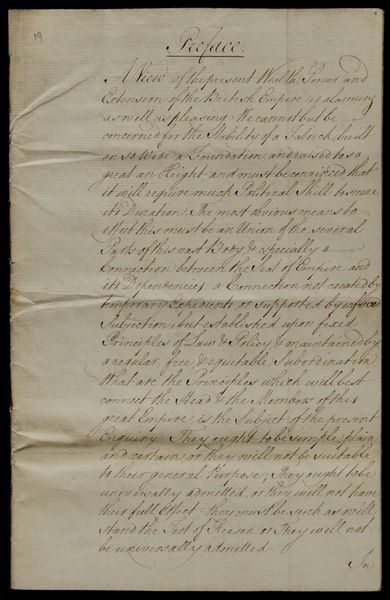 19
Preface.
A View of the present Wealth, Power and
Extension of the British Empire is alarming
as well as pleasing. We cannot but be
concerned for the Stability of a Fabrick built
on so Wide a Foundation and raised to so
great an Height and must be convinced that
it will require much Political Skill to secure
its Duration. The most obvious means to
effect this must be an Union of the several
Parts of this vast Body & especially a
Connection between the Seat of Empire and
its Dependencies, a Connection not created by
temporary Expedients or supported by inforced
Subjection, but established upon fixed
Principles of Law & Policy & maintained by
a regular, free, & equitable Subordination.
What are the Principles which will best
connect the Head & the Members of this
great Empire, is the Subject of the present
Enquiry. They ought to be simple, plain,
and certain or they will not be suitable
to their general Purpose; They ought to be
universally admitted, or they will not have
their full Effect: they must be such as will
stand the Test of Reason or They will not
be universally admitted.
In